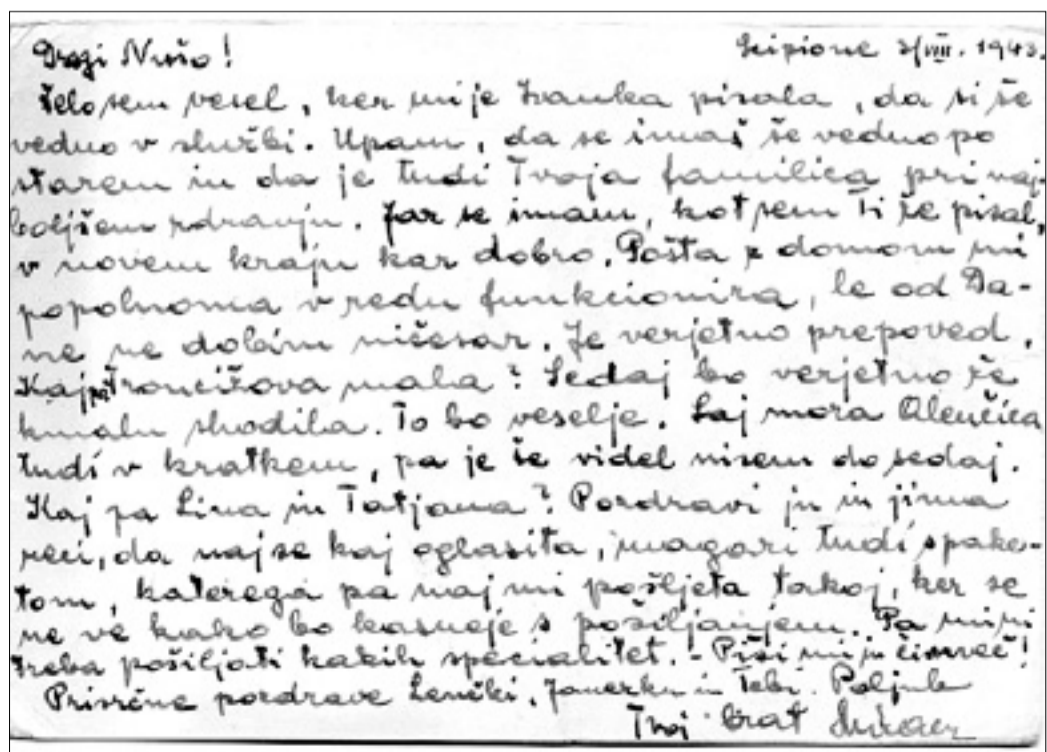 Dragi Nušo! Scipione 3/VIII. 1943.
Zelo sem vesel, ker mi je Ivanka pisala, da si še
vedno v službi. Upam, da se imaš še vedno po
starem in da je tudi Tvoja familica pri naj-
boljšem zdravju. Jaz se imam, kot sem Ti že pisal,
v novem kraju kar dobro. Pošta z domom mi
popolnoma v redu funkcionira, le od Da-
ne ne dobim ničesar. Je verjetno prepoved.
Kaj pa Froncižova mala? Sedaj bo verjetno že
kmalu shodila. To bo veselje. Saj mora Alenčica
tudi v kratkem, pa je še videl nisem do sedaj.
Kaj pa Lina in Tatjana? Pozdravi ju in jima
reci, da naj se kaj oglasita, magari tudi s pake-
tom, katerega pa naj mi pošljeta takoj, ker se
ne ve kako bo kasneje s pošiljanjem. Pa mi ni
treba pošiljati kakih specialitet. - Piši mi ju čimveč!
Prisrčne pozdrave Lenčki, Janezku in Tebi. Poljub
Tvoj brat